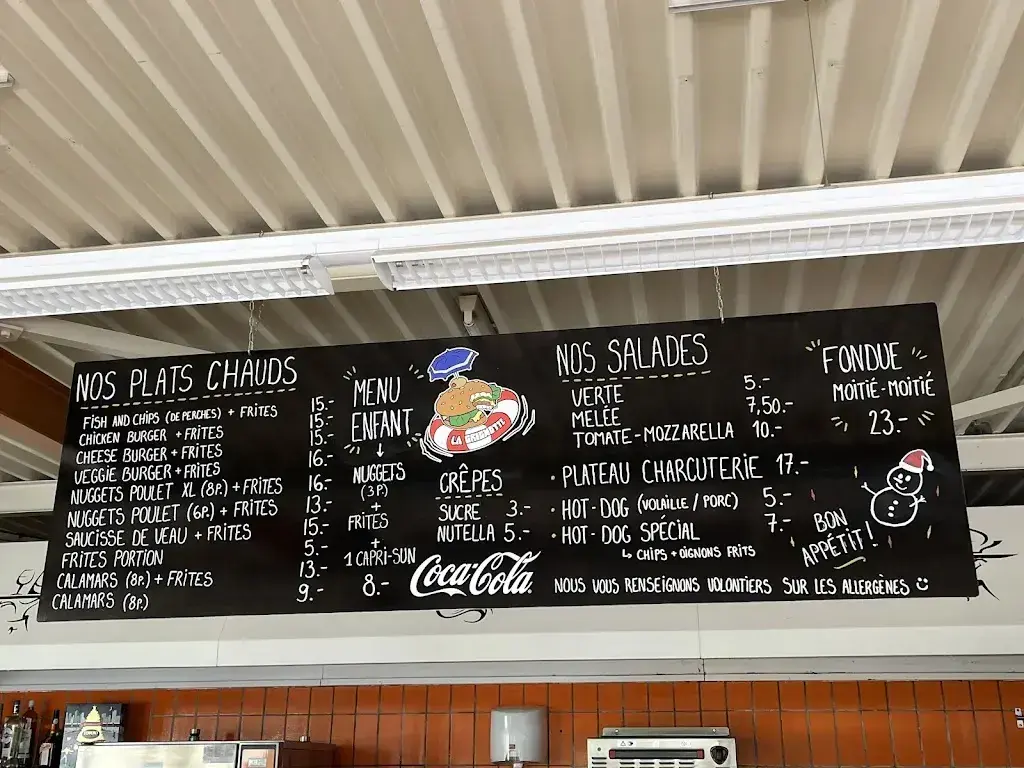 NOS PLATS CHAUDS
FISH AND CHIPS (DE PERCHES) + FRITES 15.-
CHICKEN BURGER + FRITES 15.-
CHEESE BURGER + FRITES 15.-
VEGGIE BURGER + FRITES 16.-
NUGGETS POULET XL (8P.) + FRITES 16.-
NUGGETS POULET (6P.) + FRITES 13.-
SAUCISSE DE VEAU + FRITES 15.-
FRITES PORTION 5.-
CALAMARS (8P.) + FRITES 13.-
CALAMARS (8P.) 9.-
MENU
ENFANT
NUGGETS
(3P.)
+
FRITES
+
1 CAPRI-SUN
8.-
CRÊPES
SUCRE 3.-
NUTELLA 5.-
Coca-Cola
NOS SALADES
VERTE 5.-
MELÉE 7,50.-
TOMATE-MOZZARELLA 10.-
• PLATEAU CHARCUTERIE 17.-
• HOT-DOG (VOLAILLE / PORC) 5.-
• HOT-DOG SPÉCIAL 7.-
↳ CHIPS + OIGNONS FRITS
NOUS VOUS RENSEIGNONS VOLONTIERS SUR LES ALLERGÈNES
FONDUE
MOITIÉ-MOITIÉ
23.-
BON
APPÉTIT!